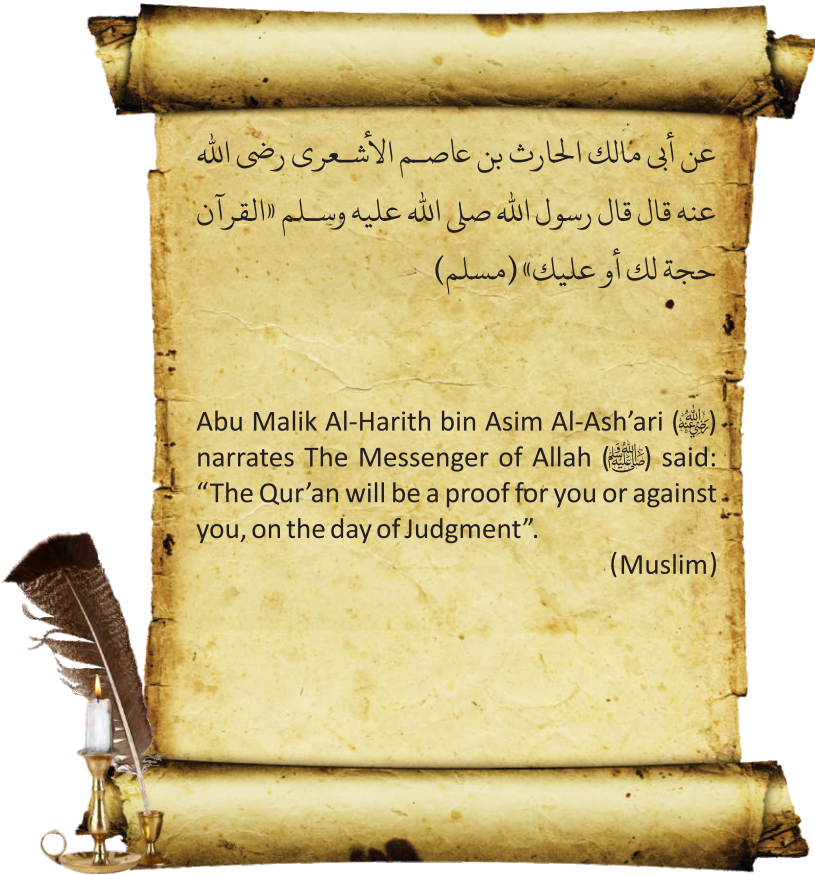 عن أبى مالك الحارث بن عاصم الأشعرى رضى الله
عنه قال قال رسول الله صلى الله عليه وسلم «القرآن
حجة لك أو عليك» (مسلم)
Abu Malik Al-Harith bin Asim Al-Ash’ari (رضي الله عنه)
narrates The Messenger of Allah (ﷺ) said:
“The Qur’an will be a proof for you or against
you, on the day of Judgment”.
(Muslim)